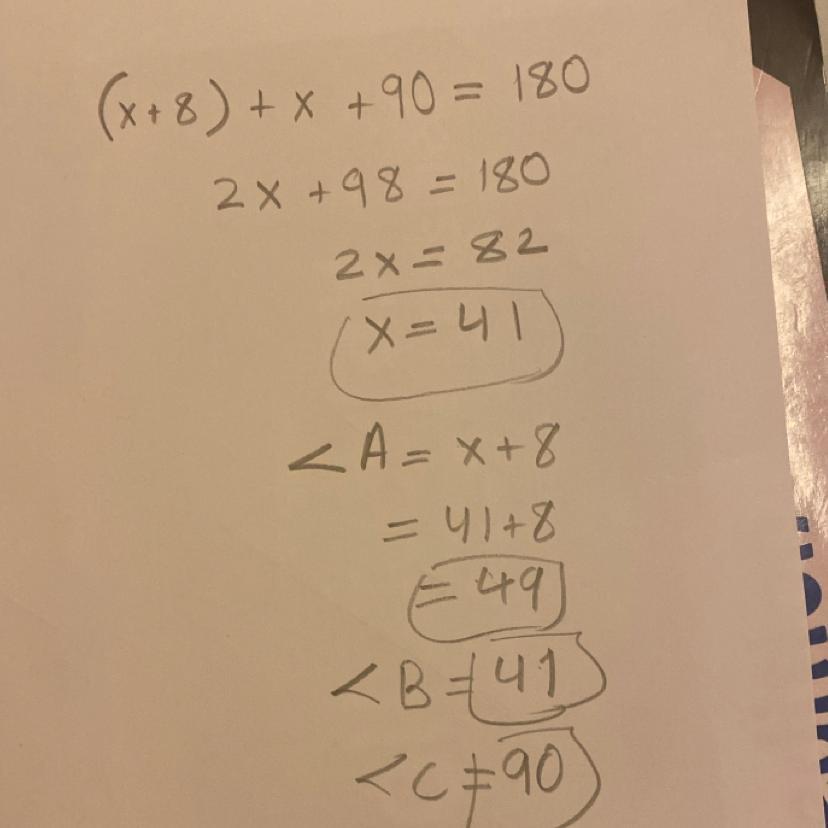 (x+8) + x + 90 = 180
2x + 98 = 180
2x = 82
x = 41
<A = x+8
= 41+8
= 49
<B = 41
<C = 90